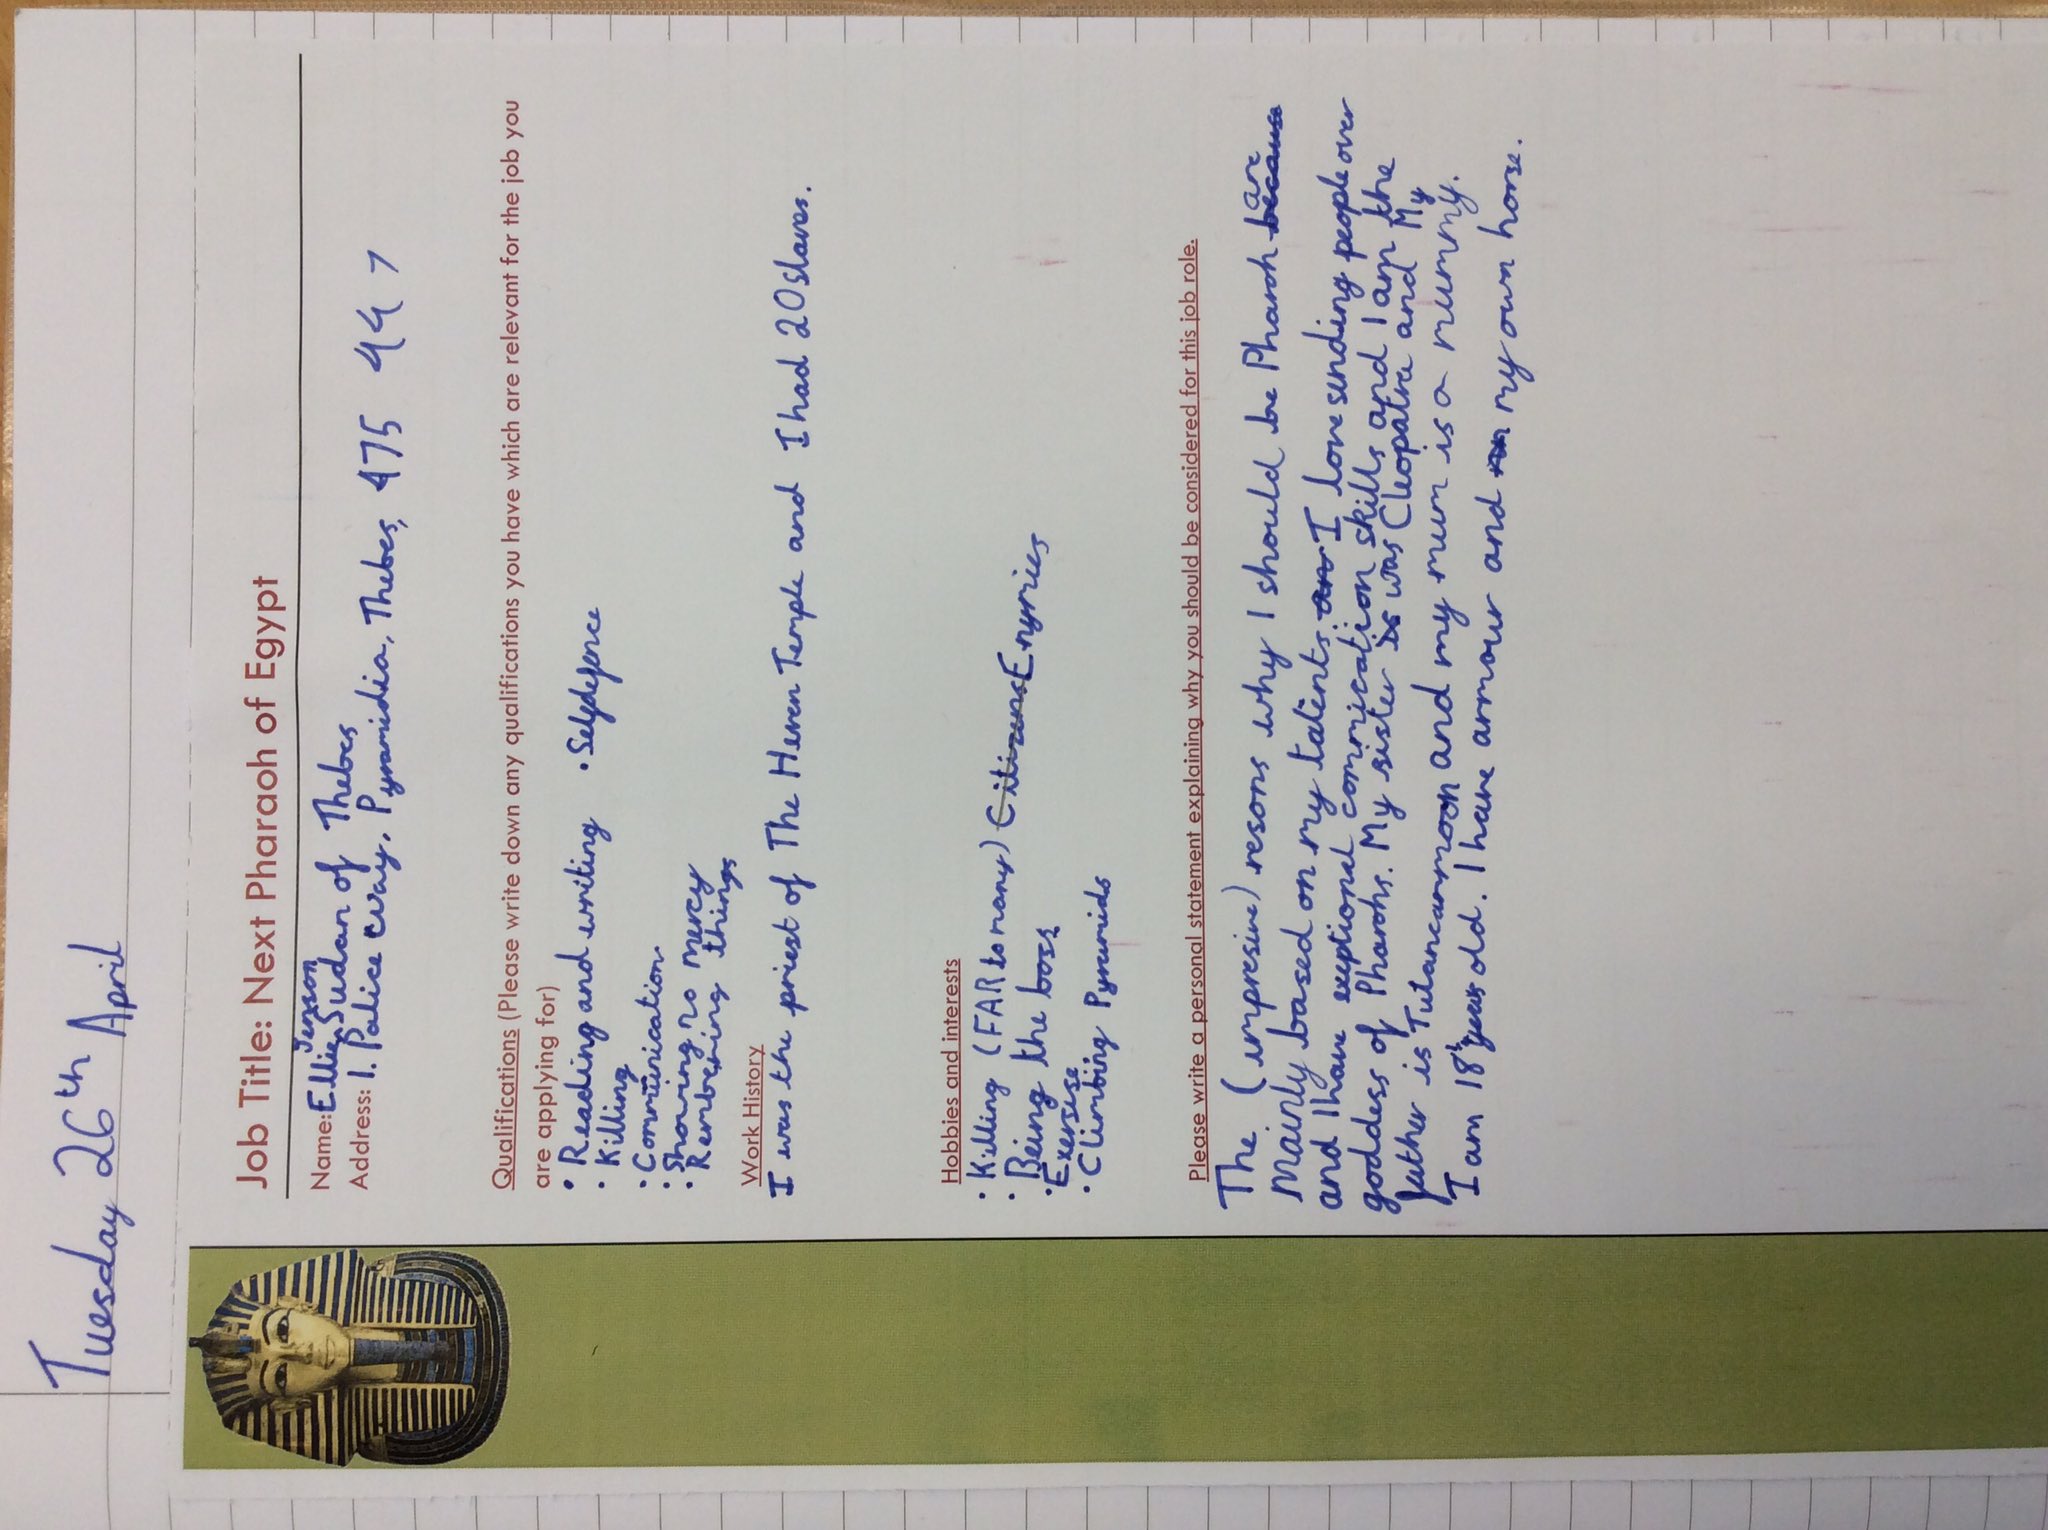 Tuesday 26th April
Job Title: Next Pharaoh of Egypt
Jenson
Name: Ellie, Sudan of Thebes
Address: 1. Palice way, Pyramidia, Thebes, 475 447
Qualifications (Please write down any qualifications you have which are relevant for the job you
are applying for)
• Reading and writing • Selfdefence
• Killing
• Communication
• Showing no mercy
• Rembering things
Work History
I was the priest of The Heven Temple and I had 20 slaves.
Hobbies and interests
• Killing (FAR to many) Citizens Enymies
• Being the boss
• Exersise
• Climbing Pyramids
Please write a personal statement explaining why you should be considered for this job role.
The (impresive) resons why I should be Pharoh because are
Mainly based on my talents I love sending people over
and I have exeptionel comunication skills and I am the
goddess of Pharohs. My sister is was Cleopatra and My
father is Tutancarmoon and my mum is a mummy.
I am 18 years old. I have armour and my own horse.